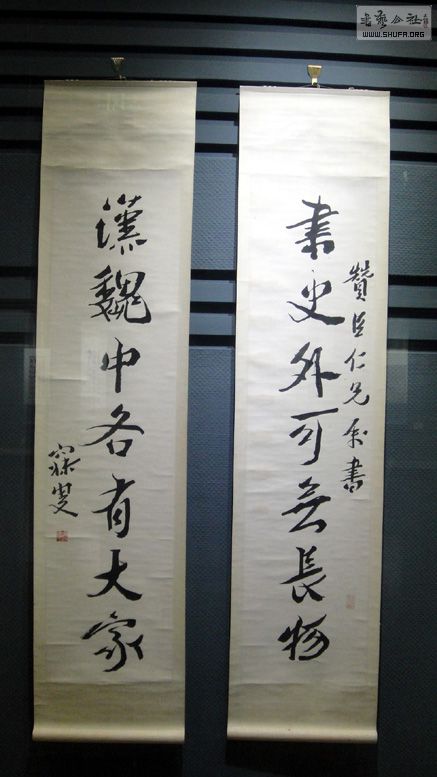 書藝公社
WWW.SHUFA.ORG
書史外可無長物
贊臣仁兄書
漢魏中各有大家
寐叟